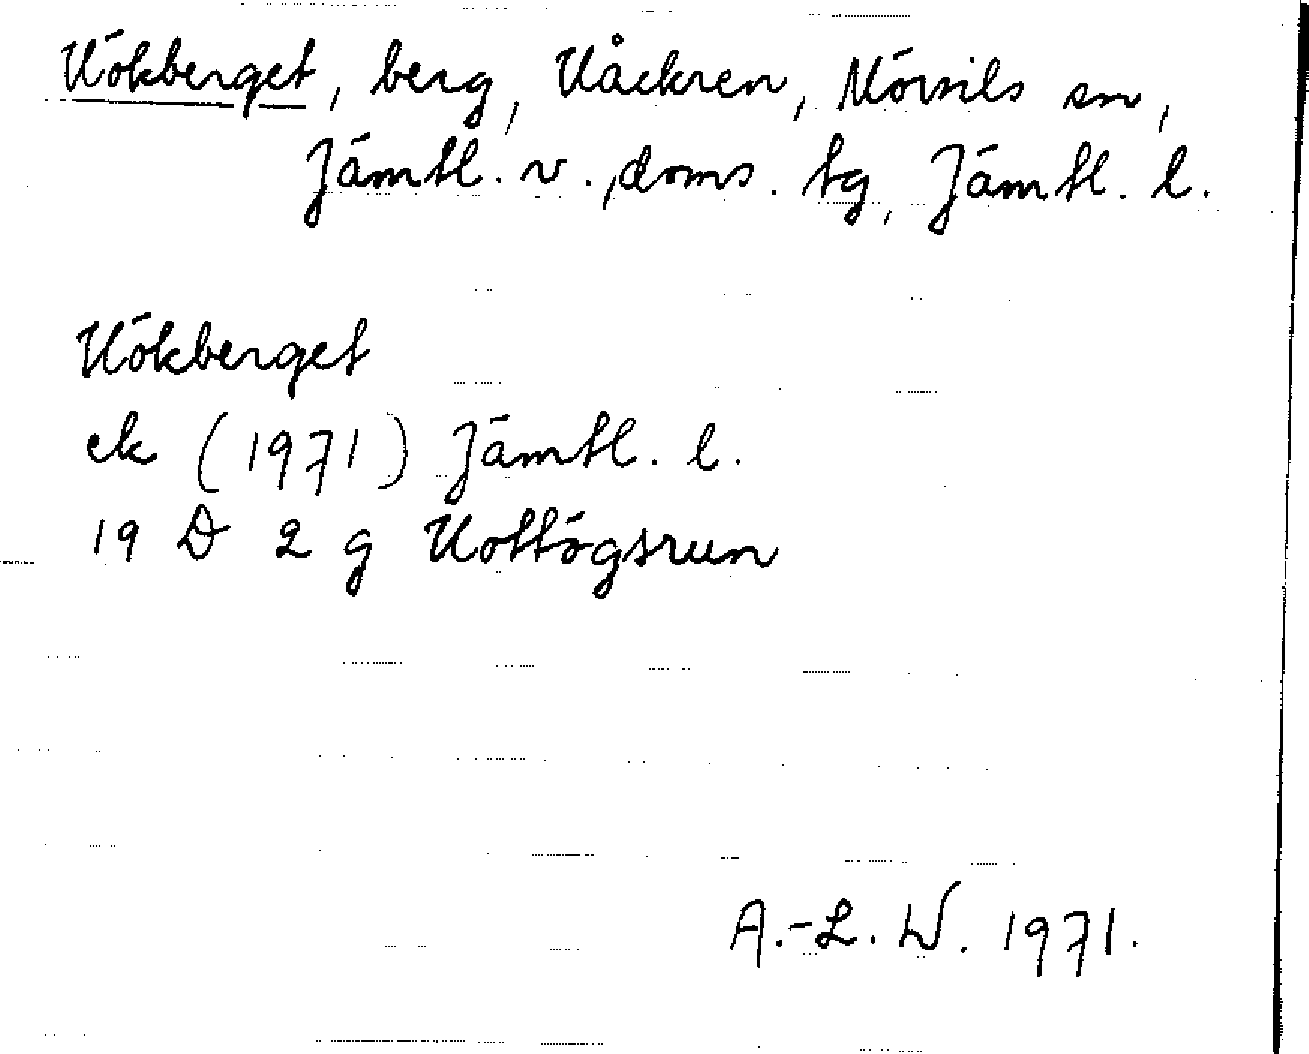 Kökberget, berg, Kåckren, Mörsils sn,
Jämtl. v., doms. tg, Jämtl. l.
Kökberget
ek (1971) Jämtl. l.
19 D 2 g Kottögsrun
A.-L. W. 1971.